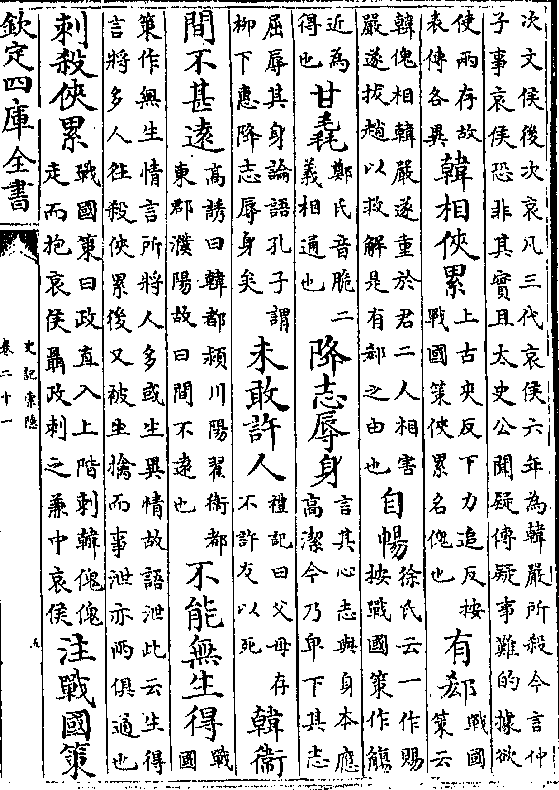 次文侯後次哀凡三代哀侯六年為韓嚴所殺今言仲
子事哀侯恐非其實且太史公聞疑傳疑事難的據欲
使兩存故
表傳各異
韓相俠累
上古夾反下力追反按
戰國策俠累名傀也
有郄
戰國
策云
韓傀相韓嚴遂重於君二人相害
嚴遂拔趨以救解是有郄之由也
自暢
徐氏云一作賜
按戰國策作觴
近為
得也
甘毳
鄭氏音脆二
義相通也
降志辱身
言其心志與身本應
高潔今乃卑下其志
屈辱其身論語孔子謂
柳下惠降志辱身矣
未敢許人
禮記曰父母存
不許友以死
韓衛
間不甚遠
高誘曰韓都潁川陽翟衛都
東郡濮陽故曰間不遠也
不能無生得
戰
國
策作無生情言所將人多或生異情故語泄此云生得
言將多人往殺俠累後又被生擒而事泄亦兩俱通也
刺殺俠累
戰國策曰政直入上階刺韓傀傀
走而抱哀侯聶政刺之兼中哀侯
注戰國策
欽定四庫全書
史記索隱
卷二十一
九